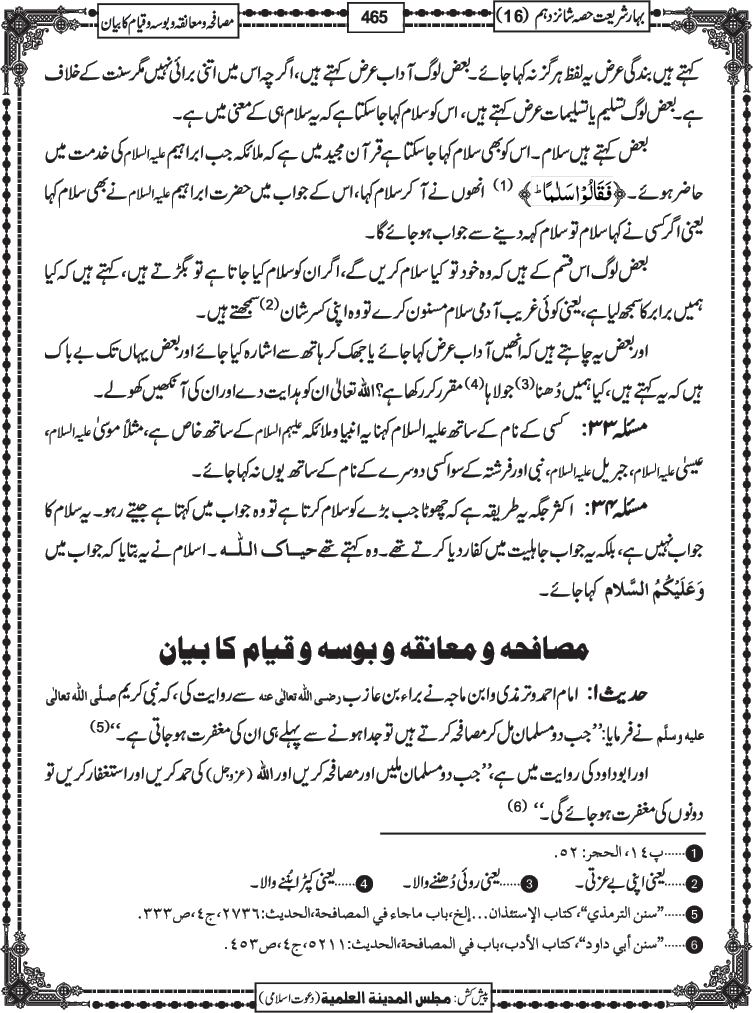 بہار شریعت حصہ شانزدہم (16)
465
مصافحہ و معانقہ و بوسہ و قیام کا بیان
کہتے ہیں بندگی عرض یہ لفظ ہرگز نہ کہا جائے۔ بعض لوگ آداب عرض کہتے ہیں، اگرچہ اس میں اتنی برائی نہیں مگر سنت کے خلاف
ہے۔ بعض لوگ تسلیم یا تسلیمات عرض کہتے ہیں، اس کو سلام کہا جاسکتا ہے کہ یہ سلام ہی کے معنی میں ہے۔
بعض کہتے ہیں سلام۔ اس کو بھی سلام کہا جاسکتا ہے قرآن مجید میں ہے کہ ملائکہ جب ابراہیم علیہ السلام کی خدمت میں
حاضر ہوئے۔ ﴿فَقَالُوْا سَلٰمًا ؕ﴾ (1) انھوں نے آکر سلام کہا، اس کے جواب میں حضرت ابراہیم علیہ السلام نے بھی سلام کہا
یعنی اگر کسی نے کہا سلام تو سلام کہہ دینے سے جواب ہوجائے گا۔
بعض لوگ اس قسم کے ہیں کہ وہ خود تو کیا سلام کریں گے، اگر ان کو سلام کیا جاتا ہے تو بگڑتے ہیں، کہتے ہیں کہ کیا
ہمیں برابر کا سمجھ لیا ہے، یعنی کوئی غریب آدمی سلام مسنون کرے تو وہ اپنی کسر شان (2) سمجھتے ہیں۔
اور بعض یہ چاہتے ہیں کہ انھیں آداب عرض کہا جائے یا جھک کر ہاتھ سے اشارہ کیا جائے اور بعض یہاں تک بے باک
ہیں کہ یہ کہتے ہیں، کیا ہمیں دُھنا (3) جولاہا (4) مقرر کر رکھا ہے؟ اللہ تعالیٰ ان کو ہدایت دے اور ان کی آنکھیں کھولے۔
مسئلہ ۳۳: کسی کے نام کے ساتھ علیہ السلام کہنا یہ انبیا و ملائکہ علیہم السلام کے ساتھ خاص ہے، مثلاً موسیٰ علیہ السلام،
عیسیٰ علیہ السلام، جبریل علیہ السلام، نبی اور فرشتہ کے سوا کسی دوسرے کے نام کے ساتھ یوں نہ کہا جائے۔
مسئلہ ۳۴: اکثر جگہ یہ طریقہ ہے کہ چھوٹا جب بڑے کو سلام کرتا ہے تو وہ جواب میں کہتا ہے جیتے رہو۔ یہ سلام کا
جواب نہیں ہے، بلکہ یہ جواب جاہلیت میں کفار دیا کرتے تھے۔ وہ کہتے تھے حیاک اللہ۔ اسلام نے یہ بتایا کہ جواب میں
وَعَلَیْکُمُ السَّلام کہا جائے۔
مصافحہ و معانقہ و بوسہ و قیام کا بیان
حدیث ۱: امام احمد و ترمذی و ابن ماجہ نے براء بن عازب رضی اللہ تعالیٰ عنہ سے روایت کی، کہ نبی کریم صلَّی اللہ تعالیٰ
علیہ وسلَّم نے فرمایا: ’’جب دو مسلمان مل کر مصافحہ کرتے ہیں تو جدا ہونے سے پہلے ہی ان کی مغفرت ہوجاتی ہے۔‘‘ (5)
اور ابوداود کی روایت میں ہے، ’’جب دو مسلمان ملیں اور مصافحہ کریں اور اللہ (عزوجل) کی حمد کریں اور استغفار کریں تو
دونوں کی مغفرت ہوجائے گی۔‘‘ (6)
1 ......پ۱۴، الحجر: ۵۲.
2 ......یعنی اپنی بے عزتی۔ 3 ......یعنی روئی دُھننے والا۔ 4 ......یعنی کپڑا بُننے والا۔
5 ......’’سنن الترمذي‘‘،کتاب الإستئذان...إلخ،باب ماجاء في المصافحة،الحدیث:۲۷۳۶،ج۴،ص۳۳۳.
6 ......’’سنن أبي داود‘‘،کتاب الأدب،باب في المصافحة،الحدیث:۵۲۱۱،ج۴،ص۴۵۳.
پیش کش: مجلس المدینة العلمیة (دعوت اسلامی)